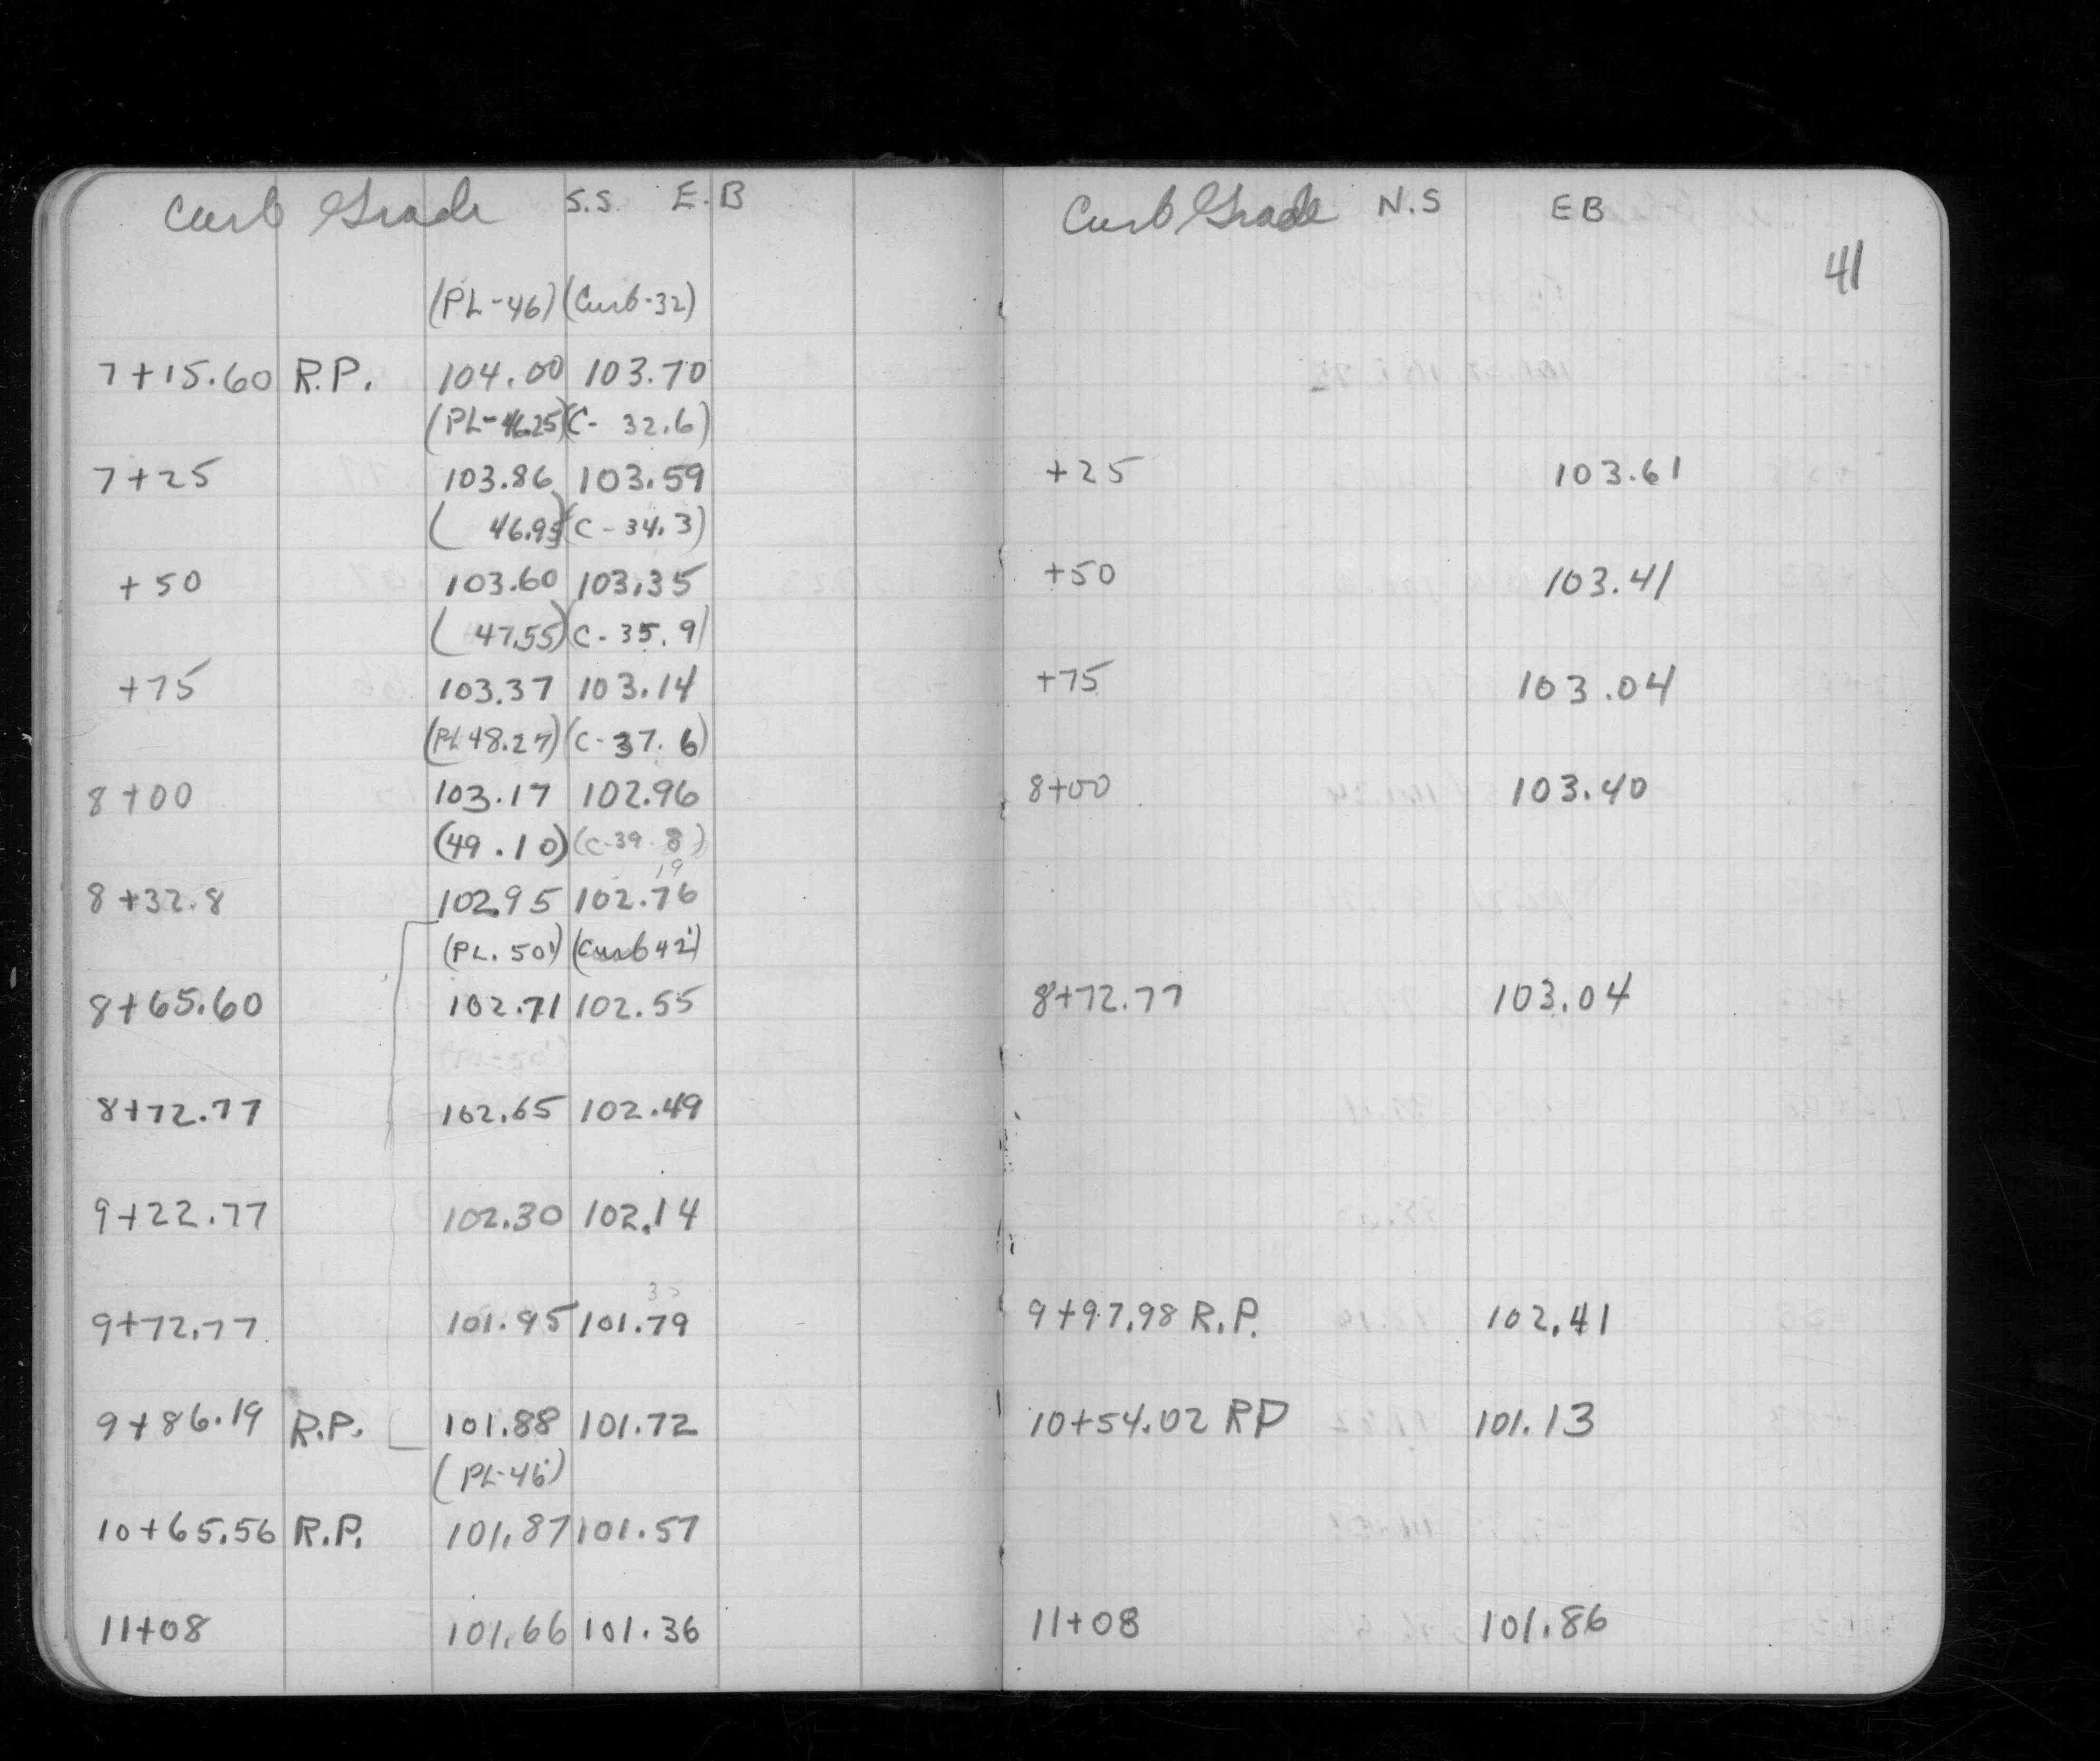 Curb Grade S.S. E.B
(PL-46) (Curb-32)
7+15.60 R.P. 104.00 103.70
(PL-46.25) (C- 32.6)
7+25 103.86 103.59
( 46.95) (C-34.3)
+50 103.60 103.35
( 47.55) (C-35.9)
+75 103.37 103.14
(PL 48.27) (C-37.6)
8+00 103.17 102.96
(49.10) (C-39.8)
8+32.8 102.95 102.76
(PL. 50') (Curb 42')
8+65.60 102.71 102.55
8+72.77 102.65 102.49
9+22.77 102.30 102.14
9+72.77 101.95 101.79
9+86.19 R.P. 101.88 101.72
(PL-46')
10+65.56 R.P. 101.87 101.57
11+08 101.66 101.36
Curb Grade N.S EB
41
+25 103.61
+50 103.41
+75 103.04
8+00 103.40
8+72.77 103.04
9+97.98 R.P. 102.41
10+54.02 RP 101.13
11+08 101.86